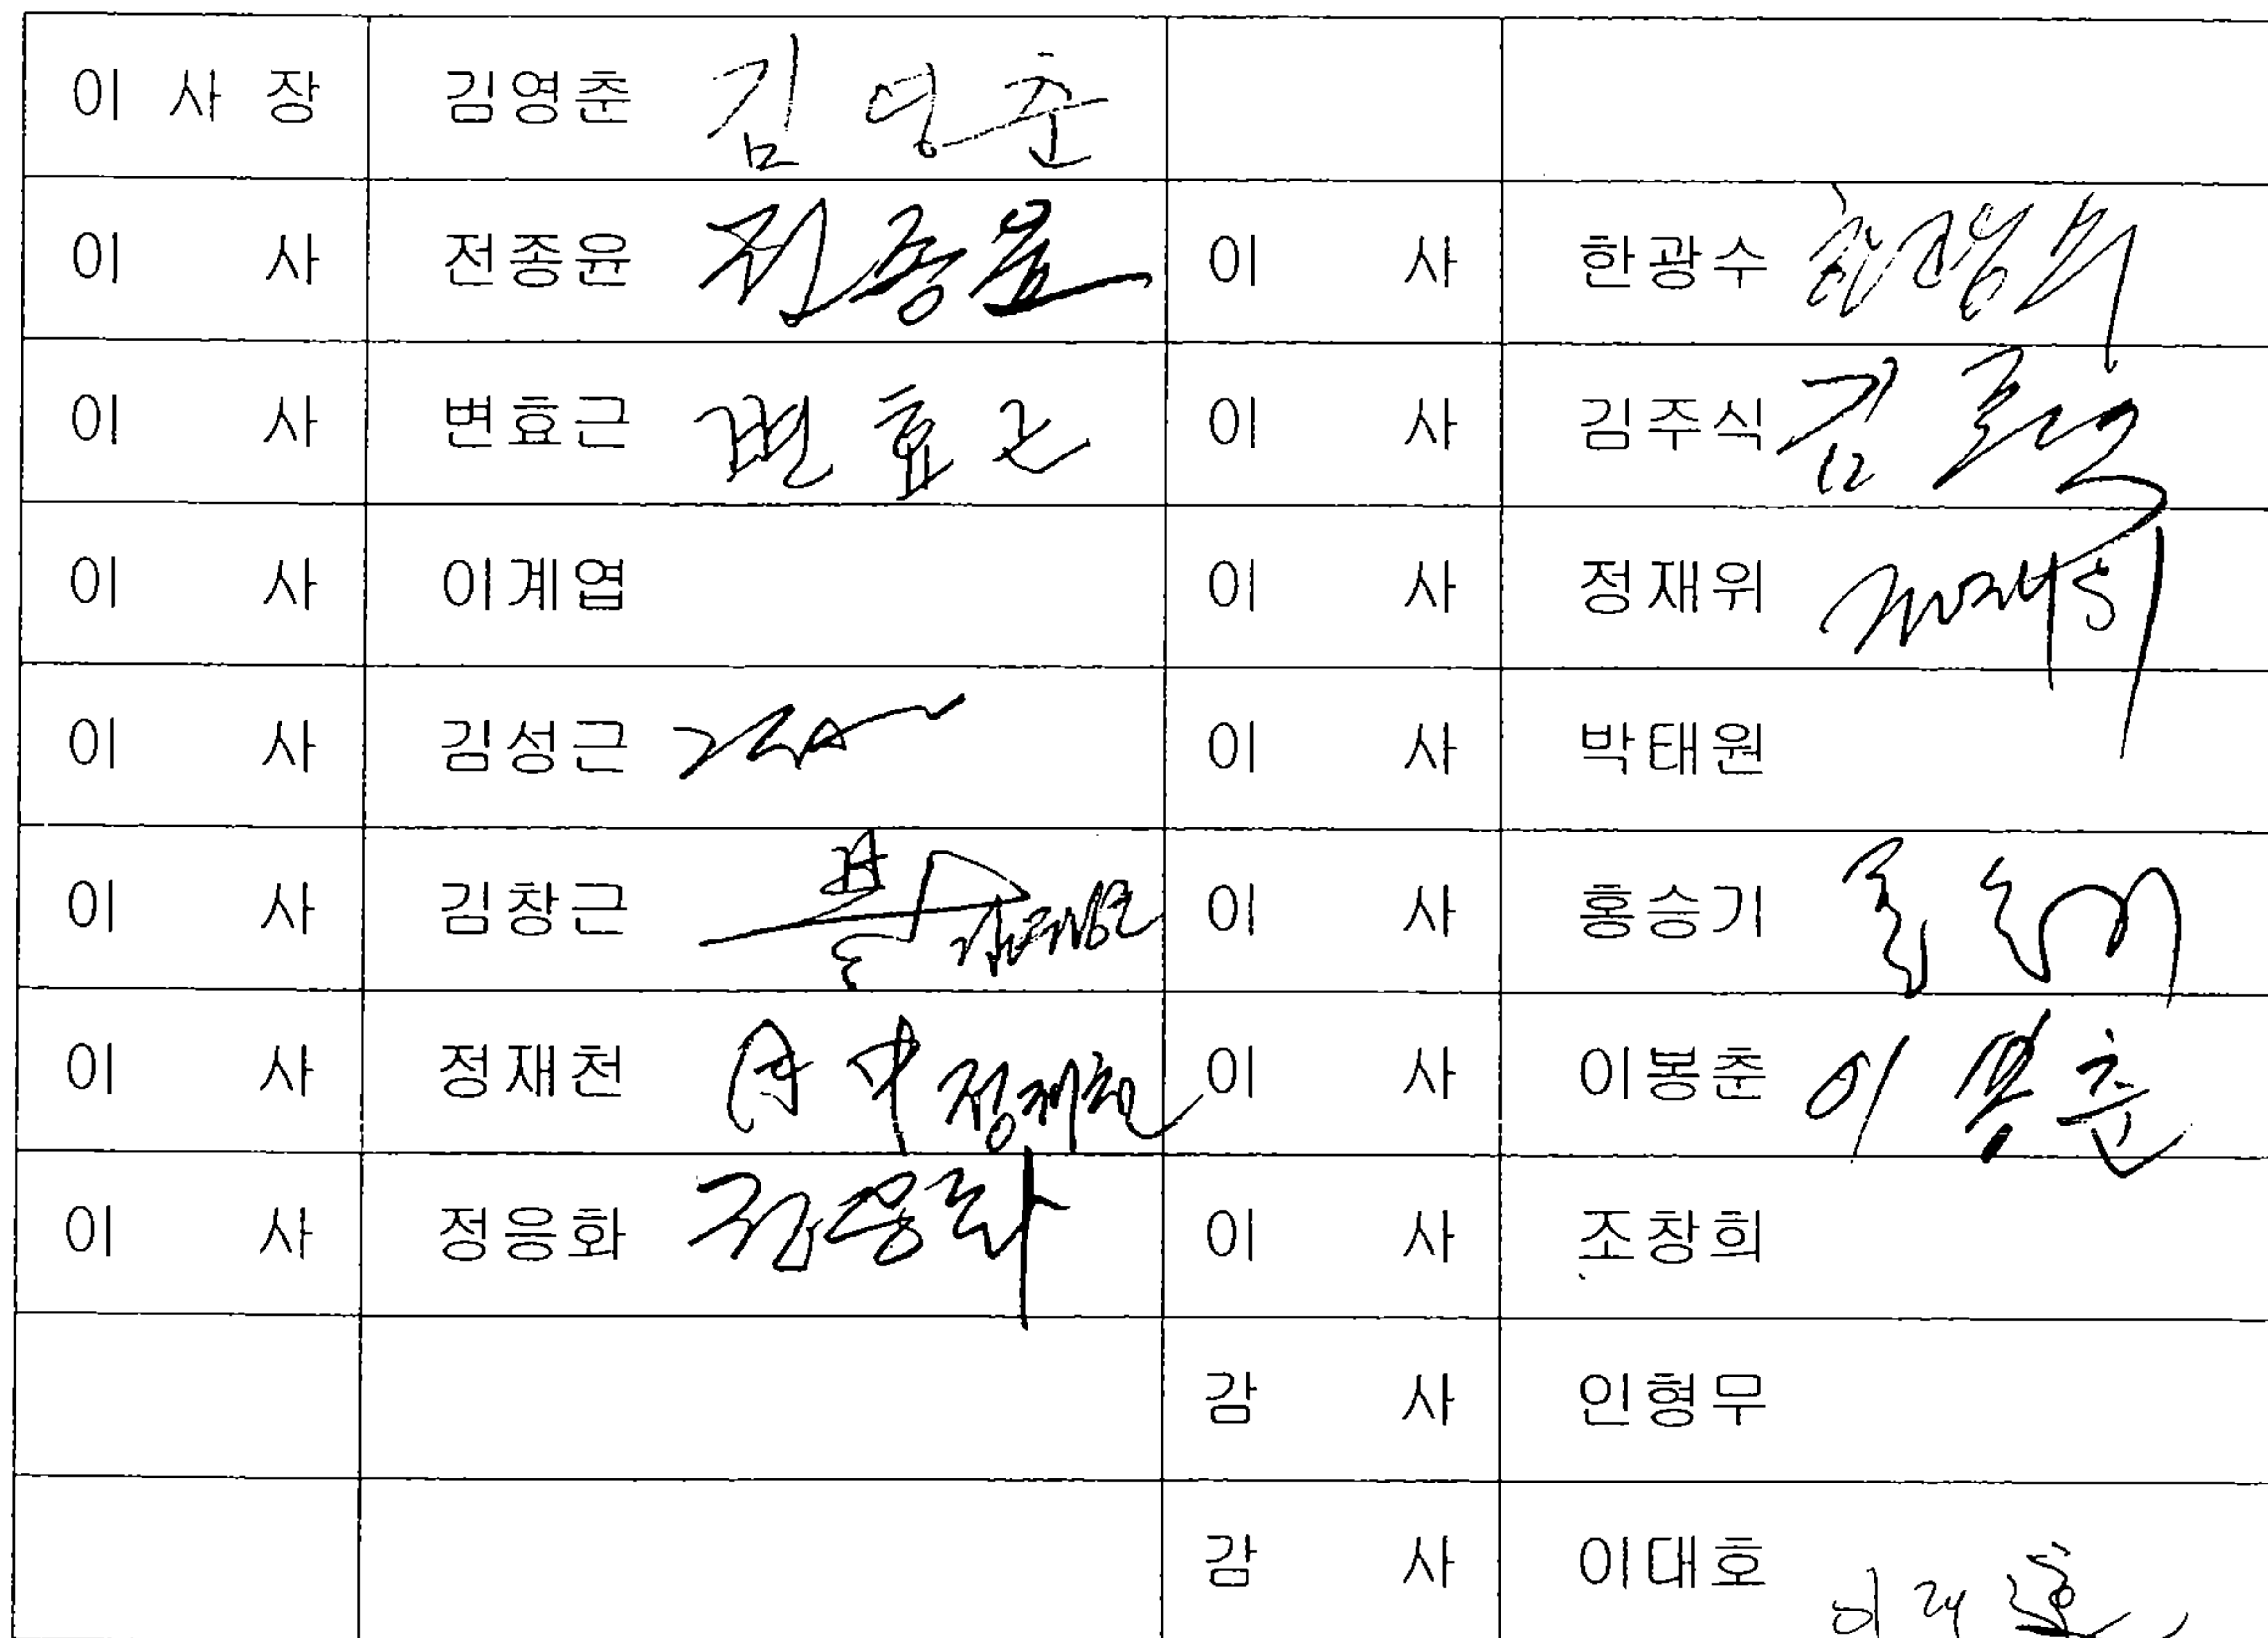 이 사 장 김영춘 김영춘
이 사 전종윤 전종윤 이 사 한광수 한광수
이 사 변효근 변효근 이 사 김주식 김주식
이 사 이계엽 이 사 정재위 정재위
이 사 김성근 이 사 박태원
이 사 김창근 김창근 이 사 홍승기
이 사 정재천 정재천 이 사 이봉춘 이봉춘
이 사 정응화 정응화 이 사 조창희
감 사 인형무
감 사 이대호 이대호